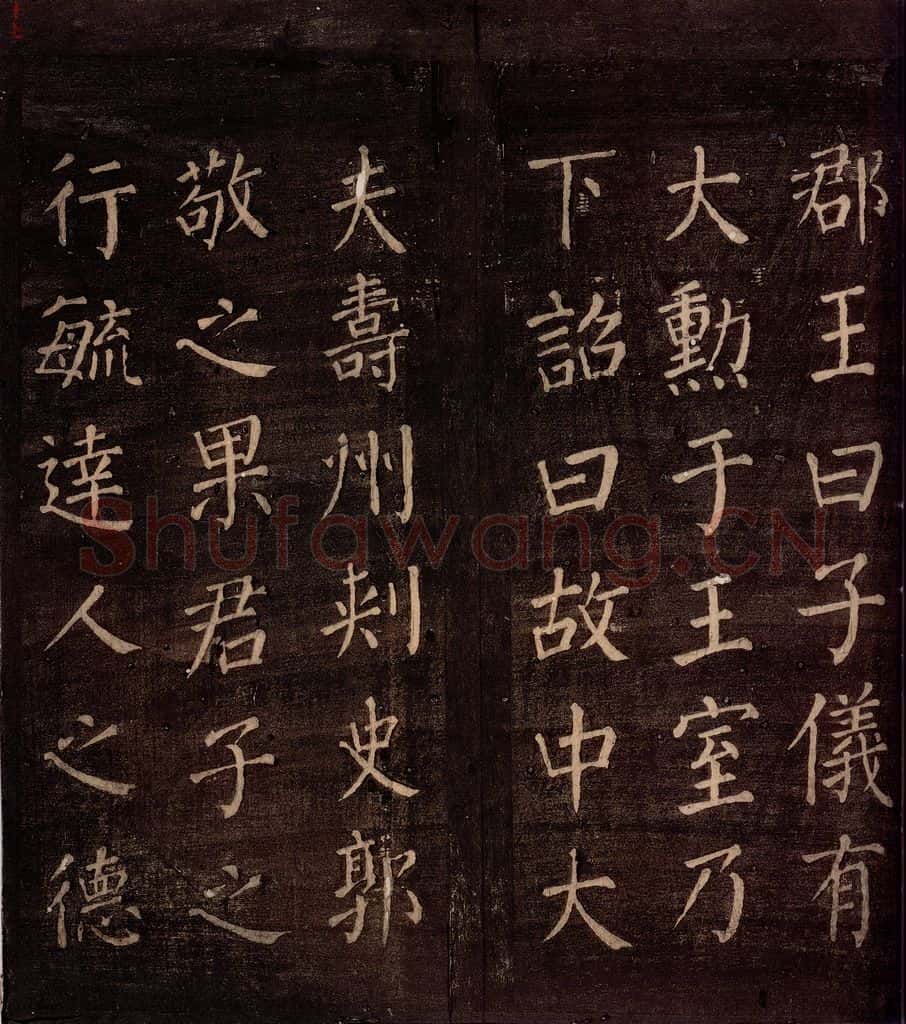 郡王曰子儀有
大勲于王室乃
下詔曰故中大
夫壽州刾史郭
敬之果君子之
行毓達人之德
Shufawang.CN